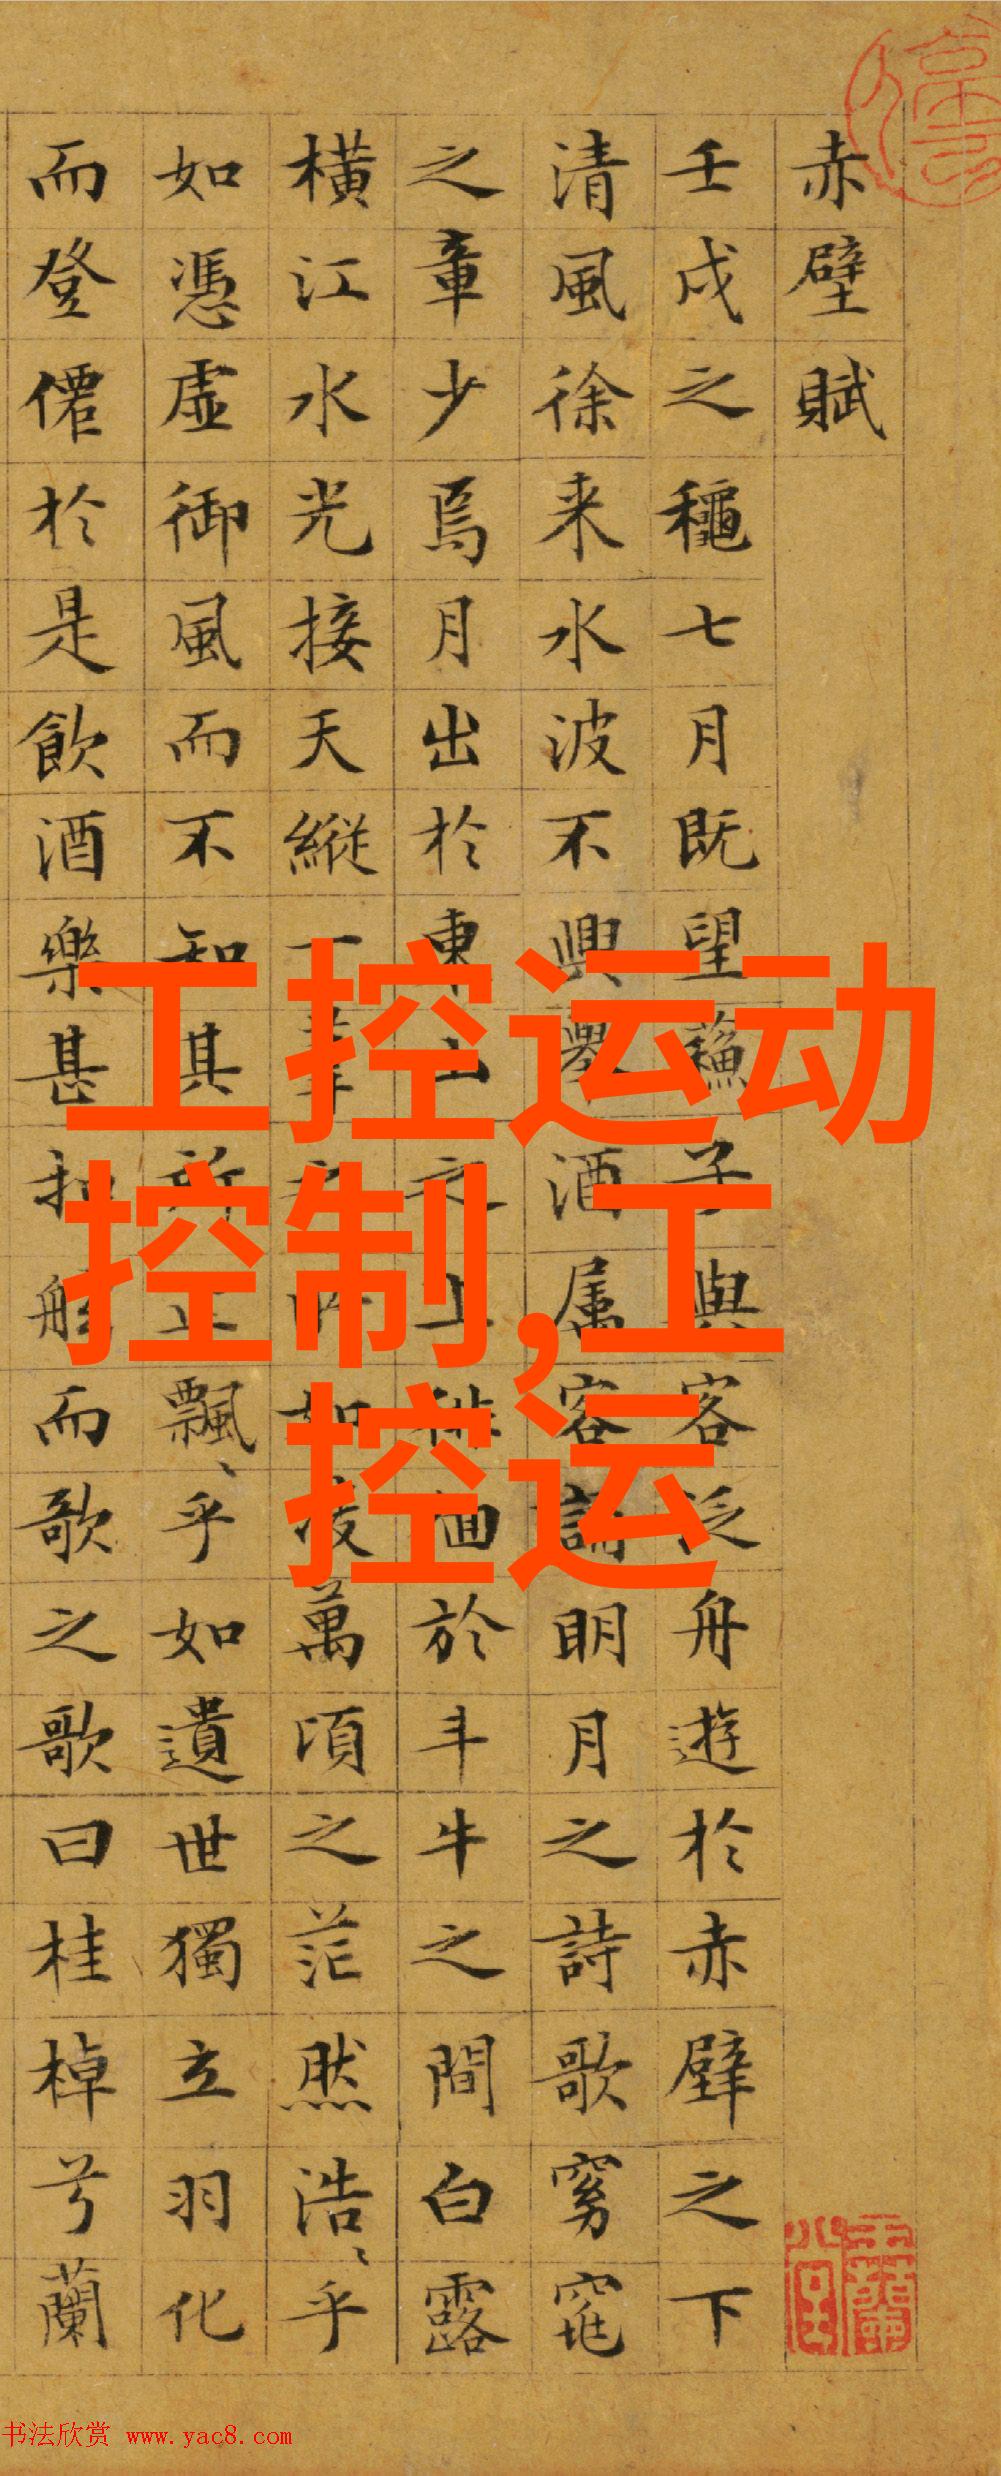 赤壁賦
壬戌之龝七月既望蘓子與客泛舟遊於赤壁之下
清風徐来水波不興舉酒属客誦明月之詩歌窈窕
之章少焉月出於東山之上徘徊於斗牛之間白露
橫江水光接天縱一葦之所如凌萬頃之茫然浩〻乎
如憑虛御風而不知其所止飄〻乎如遺世獨立羽化
而登僊於是飲酒樂甚扣舷而歌之歌曰桂棹兮蘭
工控运动
控制,工
控运
书法欣赏 www.yac8.com